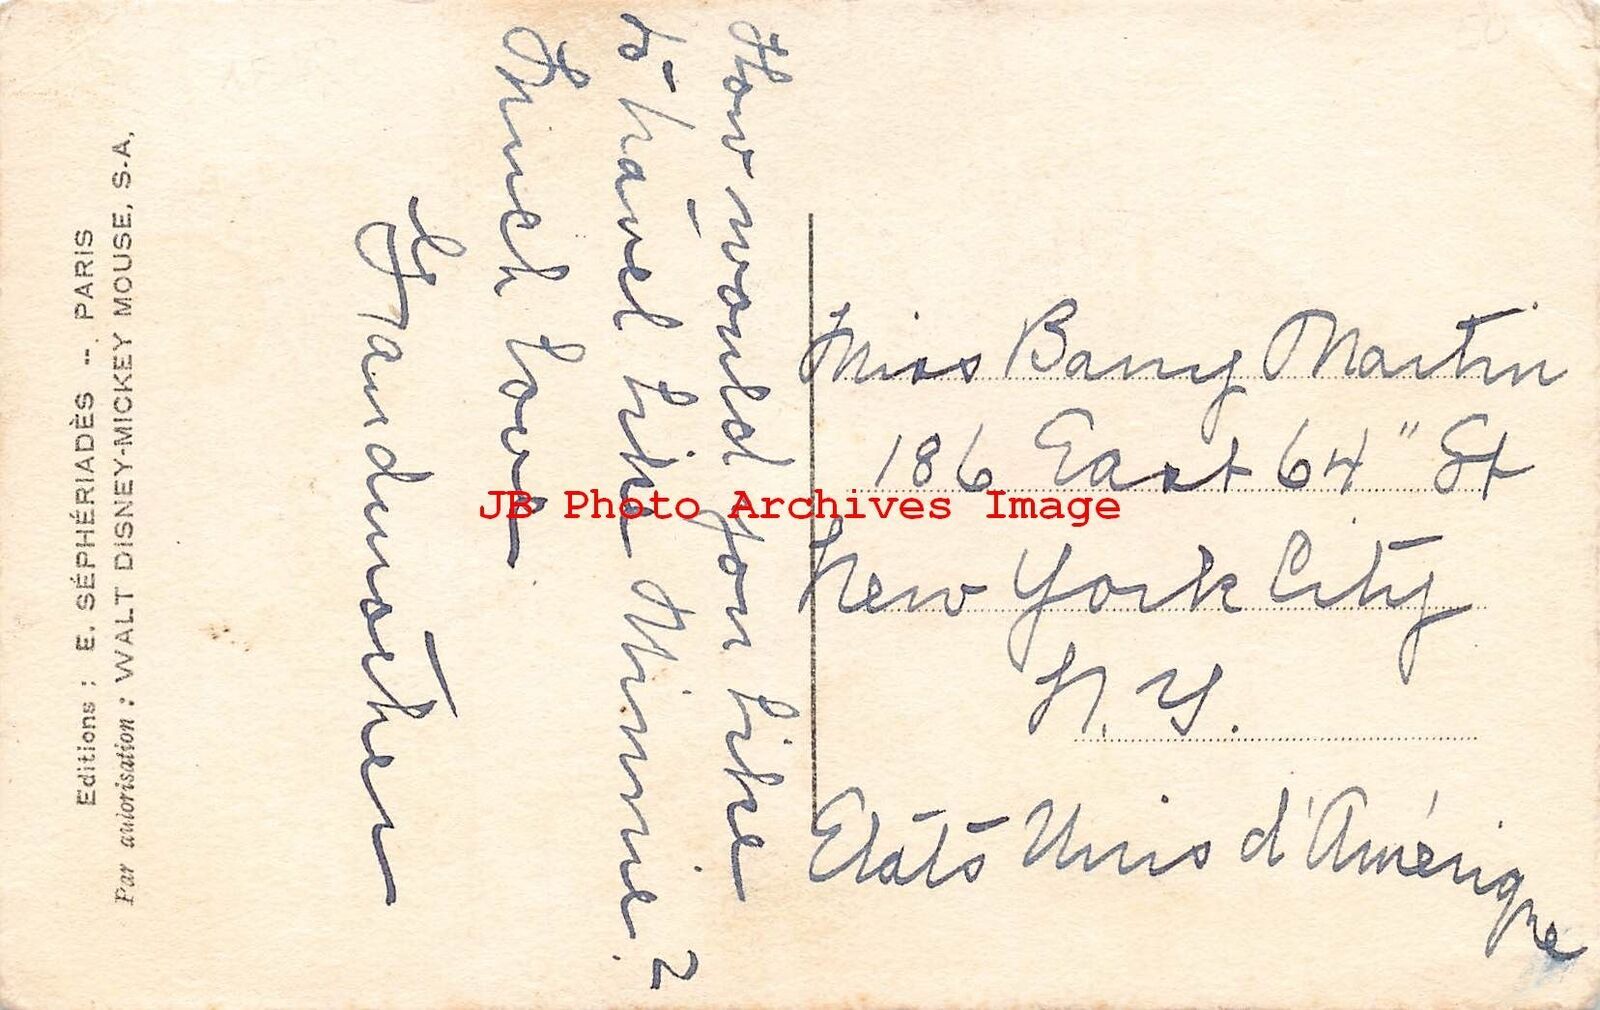 How would you like
to travel like Minnie?
Much love
Grandmother
Miss Barry Martin
186 East 64" St
New York City
N.Y.
Etats Unis d'Amérique
Editions : E. SÉPHÉRIADÈS -- PARIS
Par autorisation : WALT DISNEY-MICKEY MOUSE, S-A,
JB Photo Archives Image